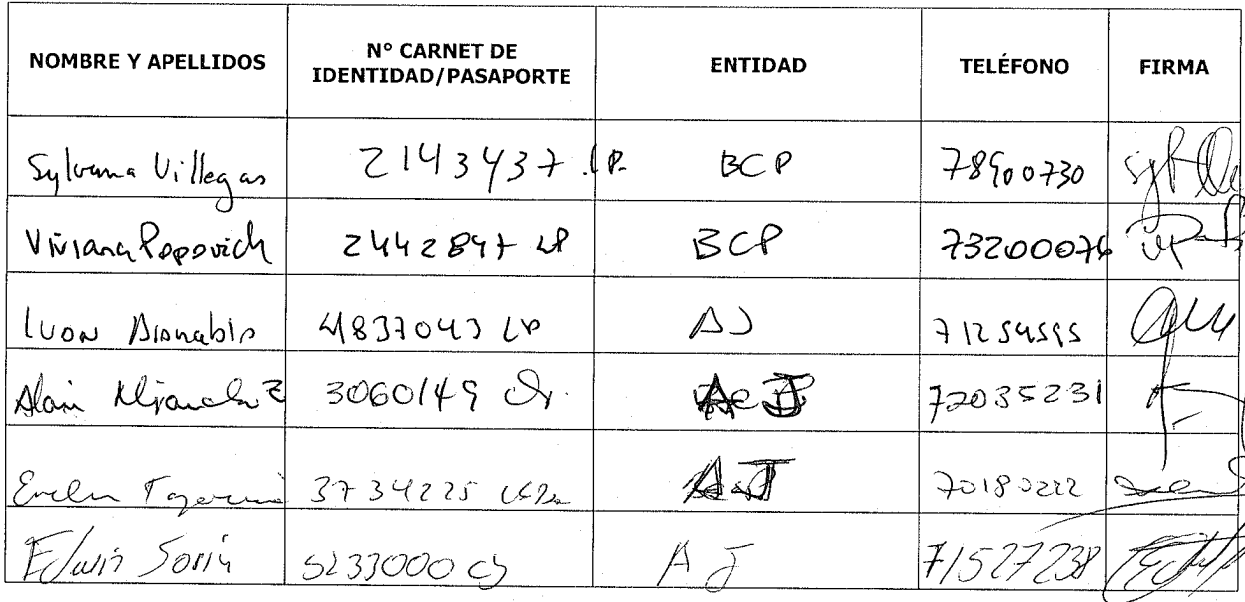 NOMBRE Y APELLIDOS
Nº CARNET DE IDENTIDAD/PASAPORTE
ENTIDAD
TELÉFONO
FIRMA
Sylvana Villegas 2143437 LP. BCP 78900730
Viviana Popovich 2442847 LP BCP 73200076
4837043 LP AJ 71254595
Alain 3060149 Or. AJ 72035231
3734225 AJ 70180222
Edwin Soria 5233000 AJ 71527238